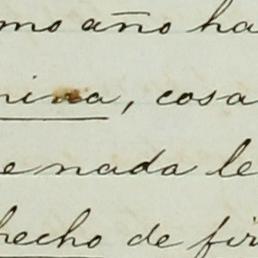 mo año ha
nina, cosa
e nada le
hecho de fir